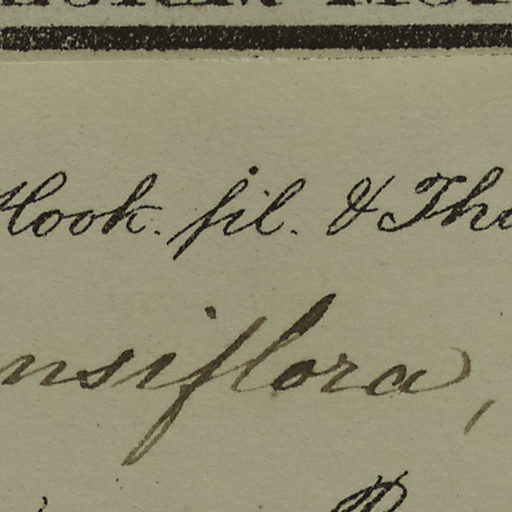 Hook. fil. & Th
nsiflora,